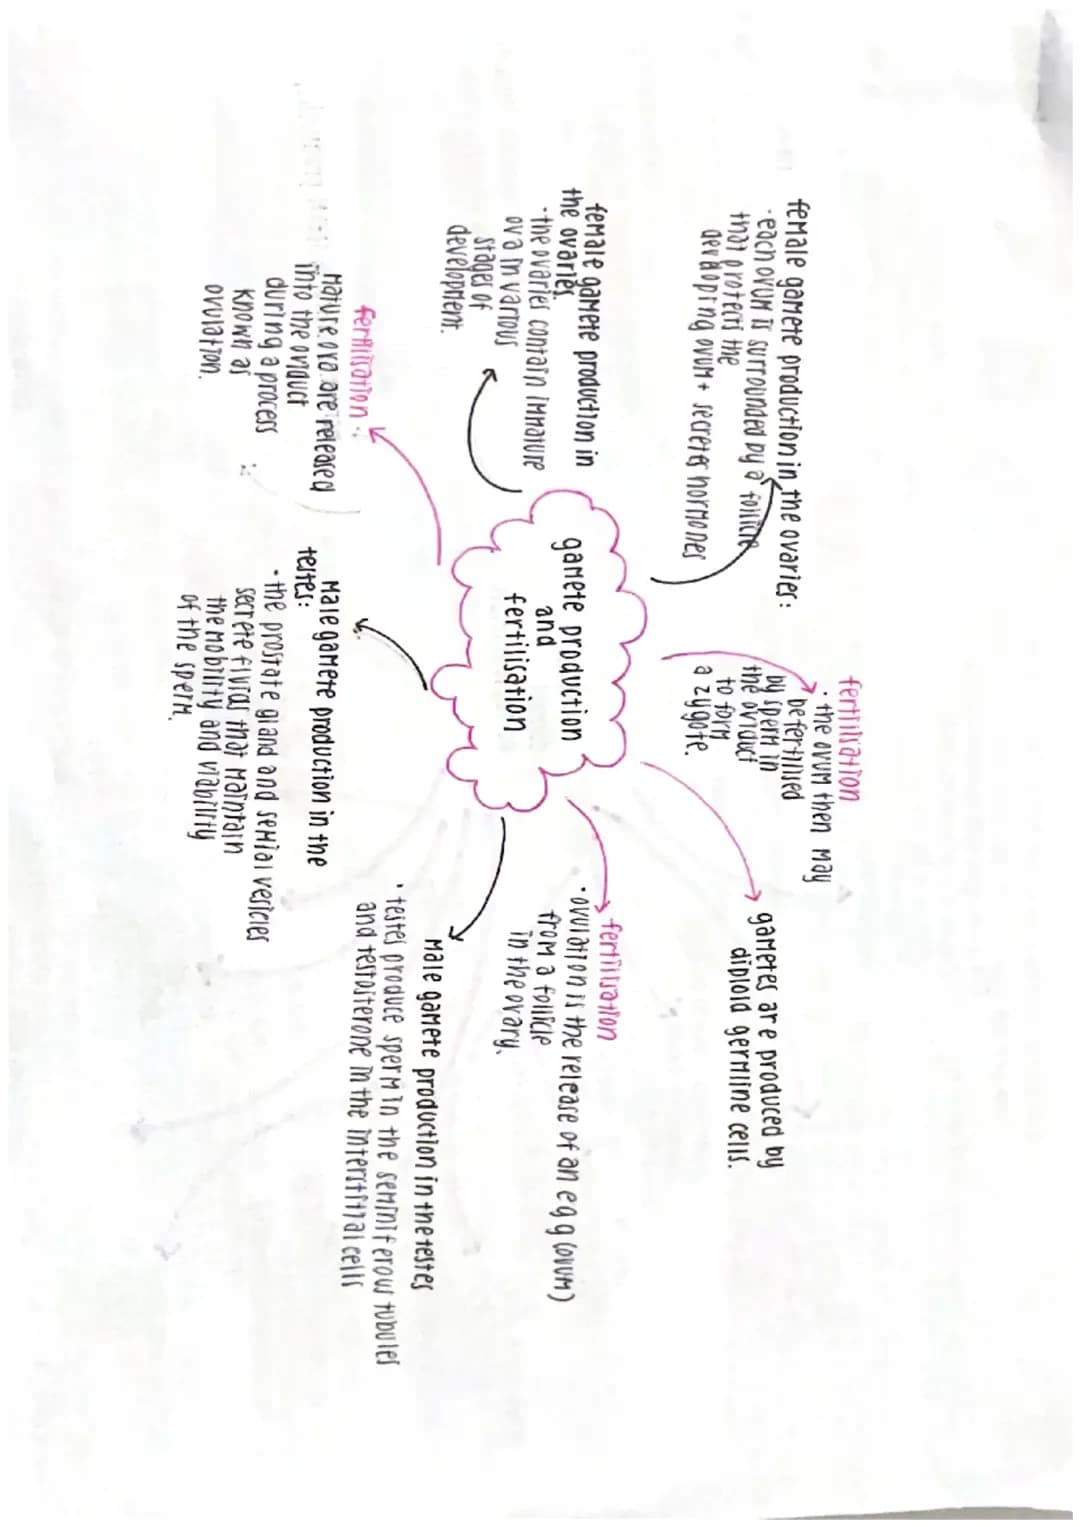 female gamete production in the ovaries:
· each ovum is surrounded by a follicle
that protects the
developing ovum + secretes hormones
fertilisation
· the ovum then may
be fertilised
by sperm in
the oviduct
to form
a zygote.
gametes are produced by
diploid germline cells.
female gamete production in
the ovaries.
· the ovaries contain immature
ova in various
stages of
development.
gamete production
and
fertilisation
fertilisation
· ovulation is the release of an egg (ovum)
from a follicle
in the ovary.
fertilisation:
mature ova are released
into the oviduct
during a process
known as
ovulation.
Male gamete production in the
testes:
· the prostate gland and semial vesicles
secrete fluids that maintain
the mobility and viability
of the sperm.
Male gamete production in the testes
· testes produce sperm in the seminiferow tubules
and testosterone in the interstitial cells